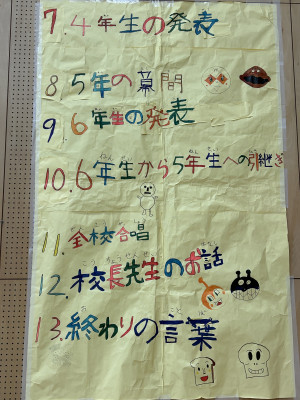 7. 4年生の発表
8. 5年の幕間
9. 6年生の発表
10. 6年生から5年生への引継ぎ
11. 全校合唱
12. 校長先生のお話
13. 終わりの言葉